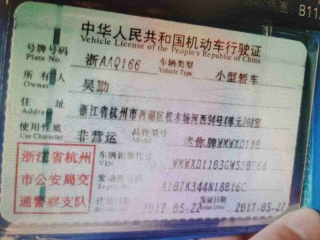 B11
中华人民共和国机动车行驶证
Vehicle License of the People's Republic of China
号牌号码 浙AAQ166 车辆类型 小型轿车
Plate No. Vehicle Type
所有人 吴勤
Owner
住址 浙江省杭州市西湖区松木场河西94号4单元
Address
使用性质 非营运 品牌型号 迷你牌WMWXD110
Use Character
浙江省杭州 车辆识别代号
VIN
市公安局交 发动机号码 A107K344N18B16C
Engine No.
通警察支队 注册日期 2017-05-22 发证日期 2017-05-22